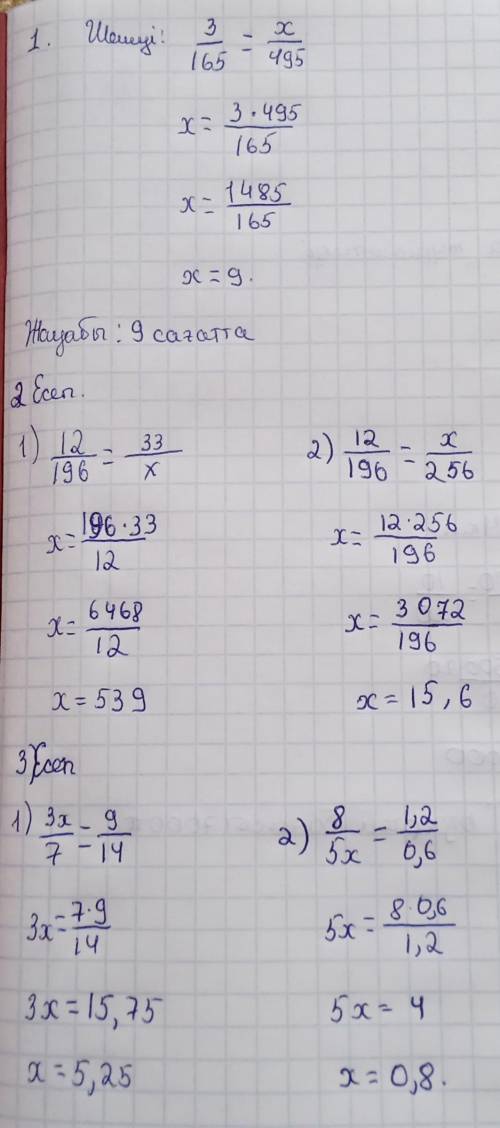 1. Шешуі: 3/165 = x/495
x = 3·495/165
x = 1485/165
x = 9.
Жауабы: 9 сағатта
2 Есеп.
1) 12/196 = 33/x
x = 196·33/12
x = 6468/12
x = 539
2) 12/196 = x/256
x = 12·256/196
x = 3072/196
x = 15,6
3 Есеп
1) 3x/7 = 9/14
3x = 7·9/14
3x = 15,75
x = 5,25
2) 8/5x = 1,2/0,6
5x = 8·0,6/1,2
5x = 4
x = 0,8.